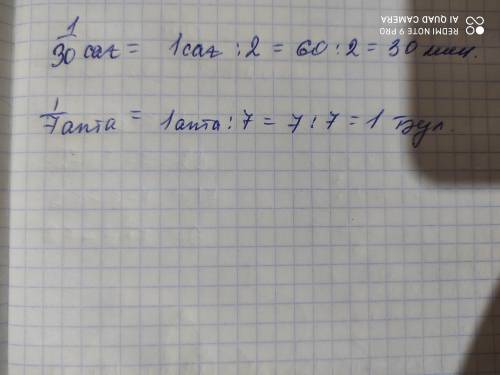 REDMI NOTE 9 PRO
AI QUAD CAMERA
1/30 сағ = 1 сағ : 2 = 60 : 2 = 30 мин.
1/7 апта = 1 апта : 7 = 7 : 7 = 1